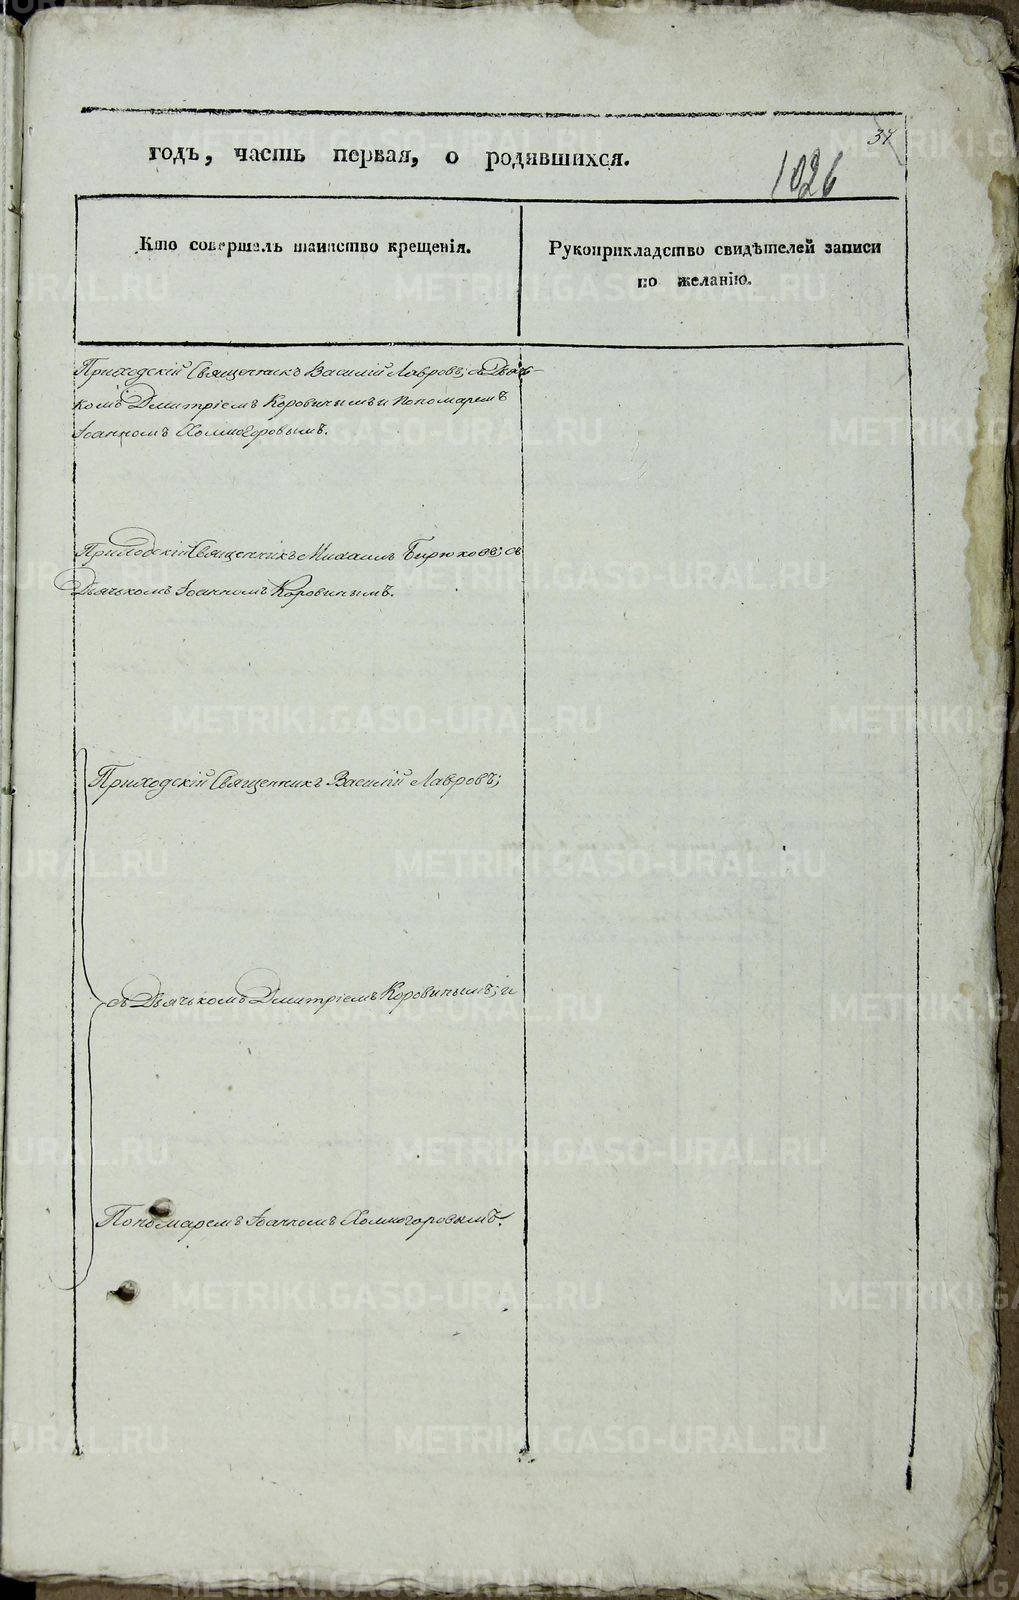 37
годъ, часть первая, о родившихся.
1026
Кто совершалъ таинство крещенія.
Рукоприкладство свидѣтелей записи
по желанію.
Приходскій Священникъ Василій Лавровъ; съ Дьяч-
комъ Дмитріемъ Коровинымъ и Пономаремъ
Іоанномъ Холмогоровымъ.
Приходскій Священникъ Михаилъ Бирюковъ; съ
Дьячькомъ Іоанномъ Коровинымъ.
Приходскій Священникъ Василій Лавровъ;
съ Дьячькомъ Дмитріемъ Коровинымъ; и
Пономаремъ Іоанномъ Холмогоровымъ.
METRIKI.GASO-URAL.RU